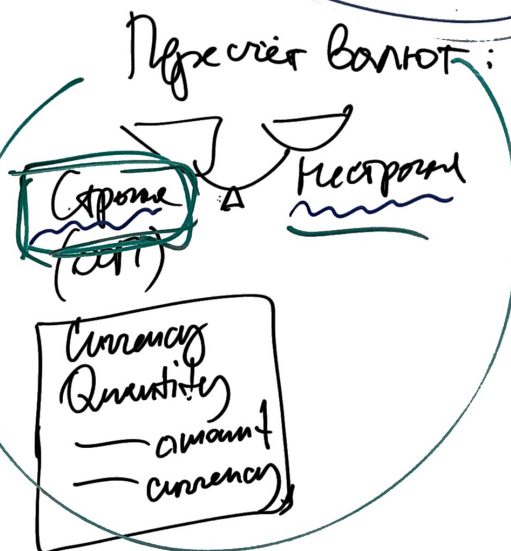 Пересчёт валют:
Строгая
Нестрогая
Currency
Quantity
— amount
— currency